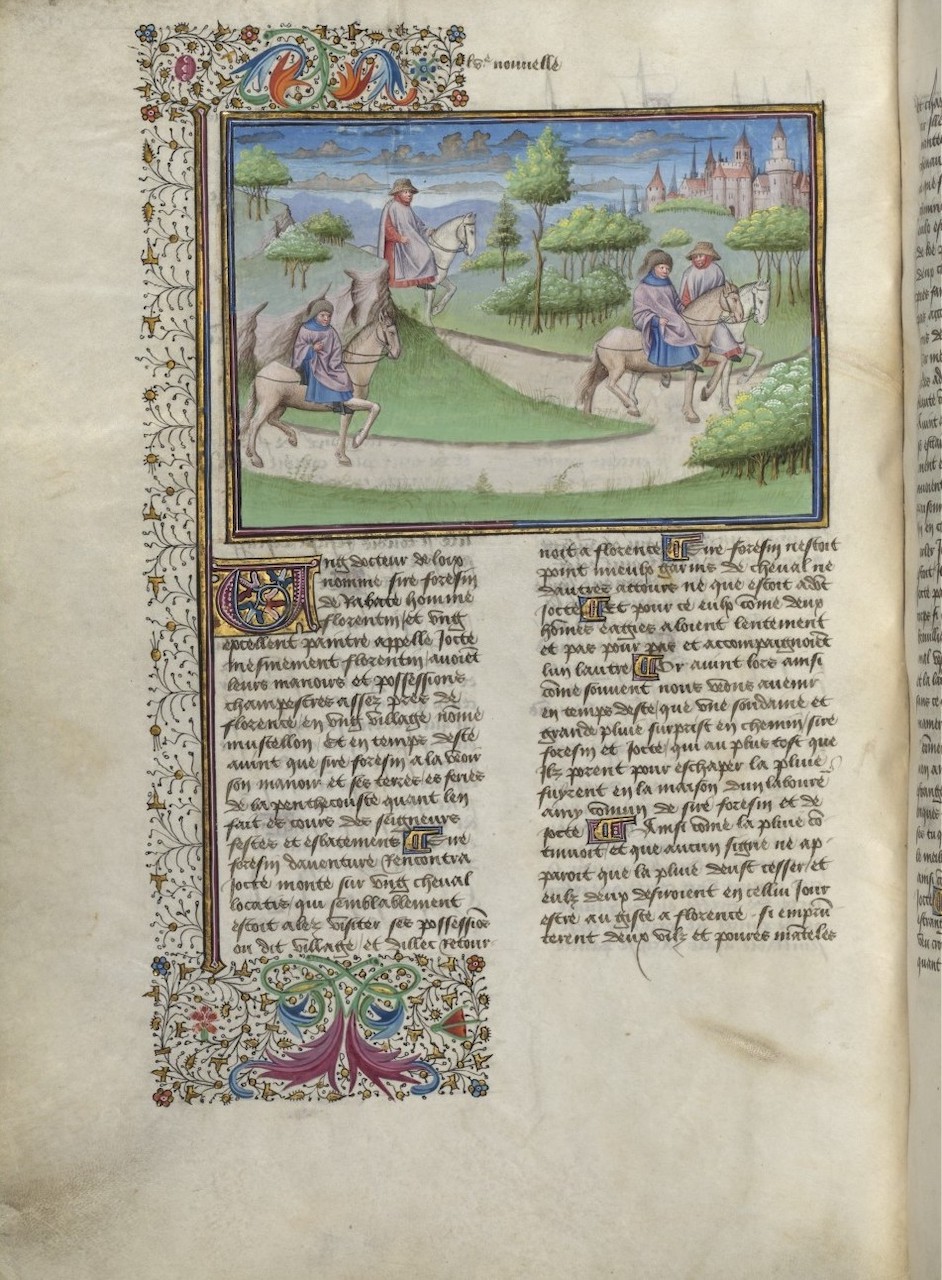 nouuelle
Ung docteur de loix
nomme sire foresin
de Rabate homme
florentin et ung
excellent paintre appelle Jocte
mesmement florentin auoiēt
leurs manoirs et possessions
champestres assez pres de
florence en ung village nōme
musellon et en temps deste
auint que sire foresin ala veoir
son manoir et ses terres es feries
de la penthecouste quant len
fait es cours des seigneurs
festes et esbatemens Sire
foresin dauenture Rencontra
Jocte monte sur ung cheual
locatis qui semblablement
estoit alez visiter ses possessiōs
ou dit village et dillec retour
noit a florence Sire foresin nestoit
point mieulx garnis de cheual ne
dautres actours ne que estoit adōt
Jocte Et pour ce eulx cōme deux
hōmes eagies aloient lentement
et pas pour pas et accompaignoiēt
lun lautre Or auint lors ainsi
cōme souuent nous veōns auenir
en temps deste que une soudaine et
grande pluie surprist en chemin sire
foresin et Jocte qui au plus tost que
Ilz porent pour eschaper la pluie
fuyrent en la maison dun laboure
amy cōmun de sire foresin et de
Jocte Ainsi cōme la pluie cō
tinuoit et que aucun signe ne ap
paroit que la pluie deust cesser et
eulx deux desiroient en cellui Jour
estre au giste a florence si emprū
terent deux vilz et poures māteles